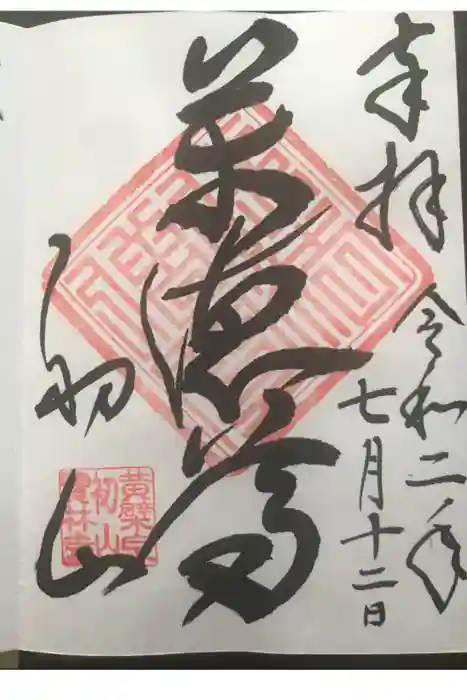 奉拝
令和二年
七月十二日
萬徳尊
初山
黄檗
初山
寳林寺